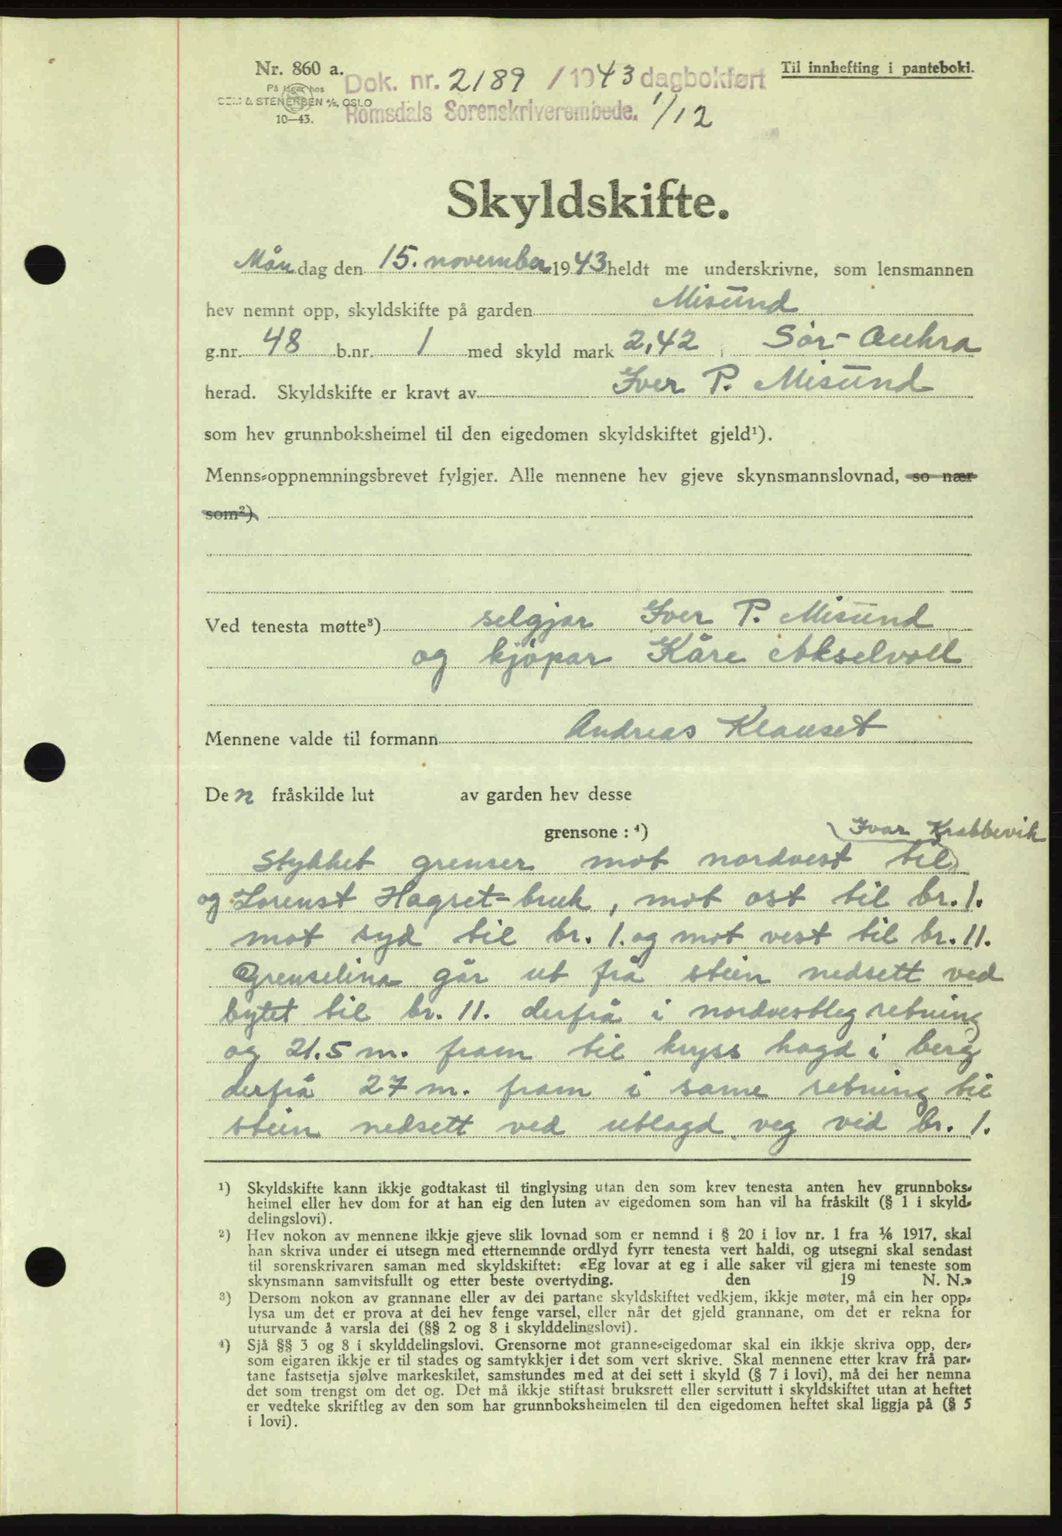 Nr. 860 a.
Til innhefting i panteboki.
Dok. nr. 2189 / 1943 dagbokført
På lager hos
& STENERSEN A/S, OSLO
Romsdals Sorenskriverembede. 1/12
10—43.
Skyldskifte.
Måndag den 15. november 1943 heldt me underskrivne, som lensmannen
hev nemnt opp, skyldskifte på garden Misund
g.nr. 48 b.nr. 1 med skyld mark 2,42 i Sør-Aukra
herad. Skyldskifte er kravt av Iver P. Misund
som hev grunnboksheimel til den eigedomen skyldskiftet gjeld¹).
Menns-oppnemningsbrevet fylgjer. Alle mennene hev gjeve skynsmannslovnad, so nær
som²)
Ved tenesta møtte³) selgjar Iver P. Misund
og kjøpar Kåre Akselvoll
Mennene valde til formann Andreas Klauset
Den fråskilde lut av garden hev desse
grensone : ⁴) Ivar Krabbevik
Stykket grenser mot nordvest til
og Lorenst Hagset-bruk, mot ost til br. 1.
mot syd til br. 1. og mot vest til br. 11.
Grenselina går ut frå stein nedsett ved
bytet til br. 11. derfrå i nordvestleg retning
og 21.5 m. fram til kryss hogd i berg
derfrå 27 m. fram i same retning til
stein nedsett ved utlagd veg vid br. 1.
¹) Skyldskifte kann ikkje godtakast til tinglysing utan den som krev tenesta anten hev grunnboks-
heimel eller hev dom for at han eig den luten av eigedomen som han vil ha fråskilt (§ 1 i skyld-
delingslovi).
²) Hev nokon av mennene ikkje gjeve slik lovnad som er nemnd i § 20 i lov nr. 1 fra 1/6 1917, skal
han skriva under ei utsegn med etternemnde ordlyd fyrr tenesta vert haldi, og utsegni skal sendast
til sorenskrivaren saman med skyldskiftet: «Eg lovar at eg i alle saker vil gjera mi teneste som
skynsmann samvitsfullt og etter beste overtyding. den 19 N. N.»
³) Dersom nokon av grannane eller av dei partane skyldskiftet vedkjem, ikkje møter, må ein her opp-
lysa um det er prova at dei hev fenge varsel, eller når det gjeld grannane, om det er rekna for
uturvande å varsla dei (§§ 2 og 8 i skylddelingslovi).
⁴) Sjå §§ 3 og 8 i skylddelingslovi. Grensorne mot granne-eigedomar skal ein ikkje skriva opp, der-
som eigaren ikkje er til stades og samtykkjer i det som vert skrive. Skal mennene etter krav frå par-
tane fastsetja sjølve markeskilet, samstundes med at dei sett i skyld (§ 7 i lovi), må dei her nemna
det som trengst om det og. Det må ikkje stiftast bruksrett eller servitutt i skyldskiftet utan at heftet
er vedteke skriftleg av den som har grunnboksheimelen til den eigedomen heftet skal liggja på (§ 5
i lovi).